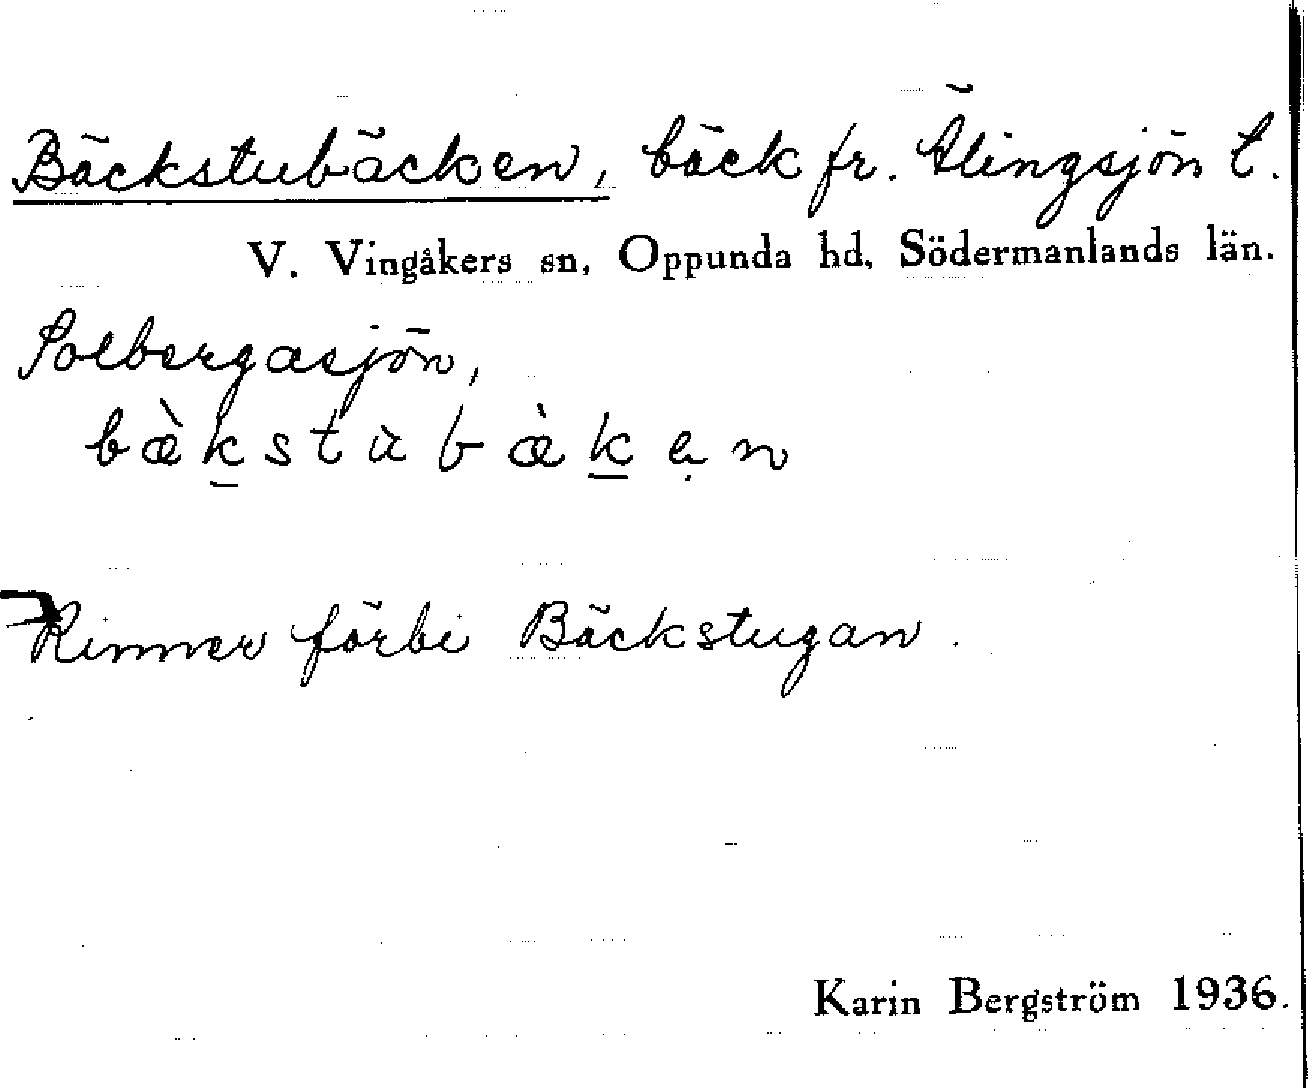 Bäckstubäcken, bäck fr. Älingsjön t.
V. Vingåkers sn, Oppunda hd, Södermanlands län.
Solbergasjön,
bæ̀k̠stùbæ̀k̠ẹn
Rinner förbi Bäckstugan.
Karin Bergström 1936.